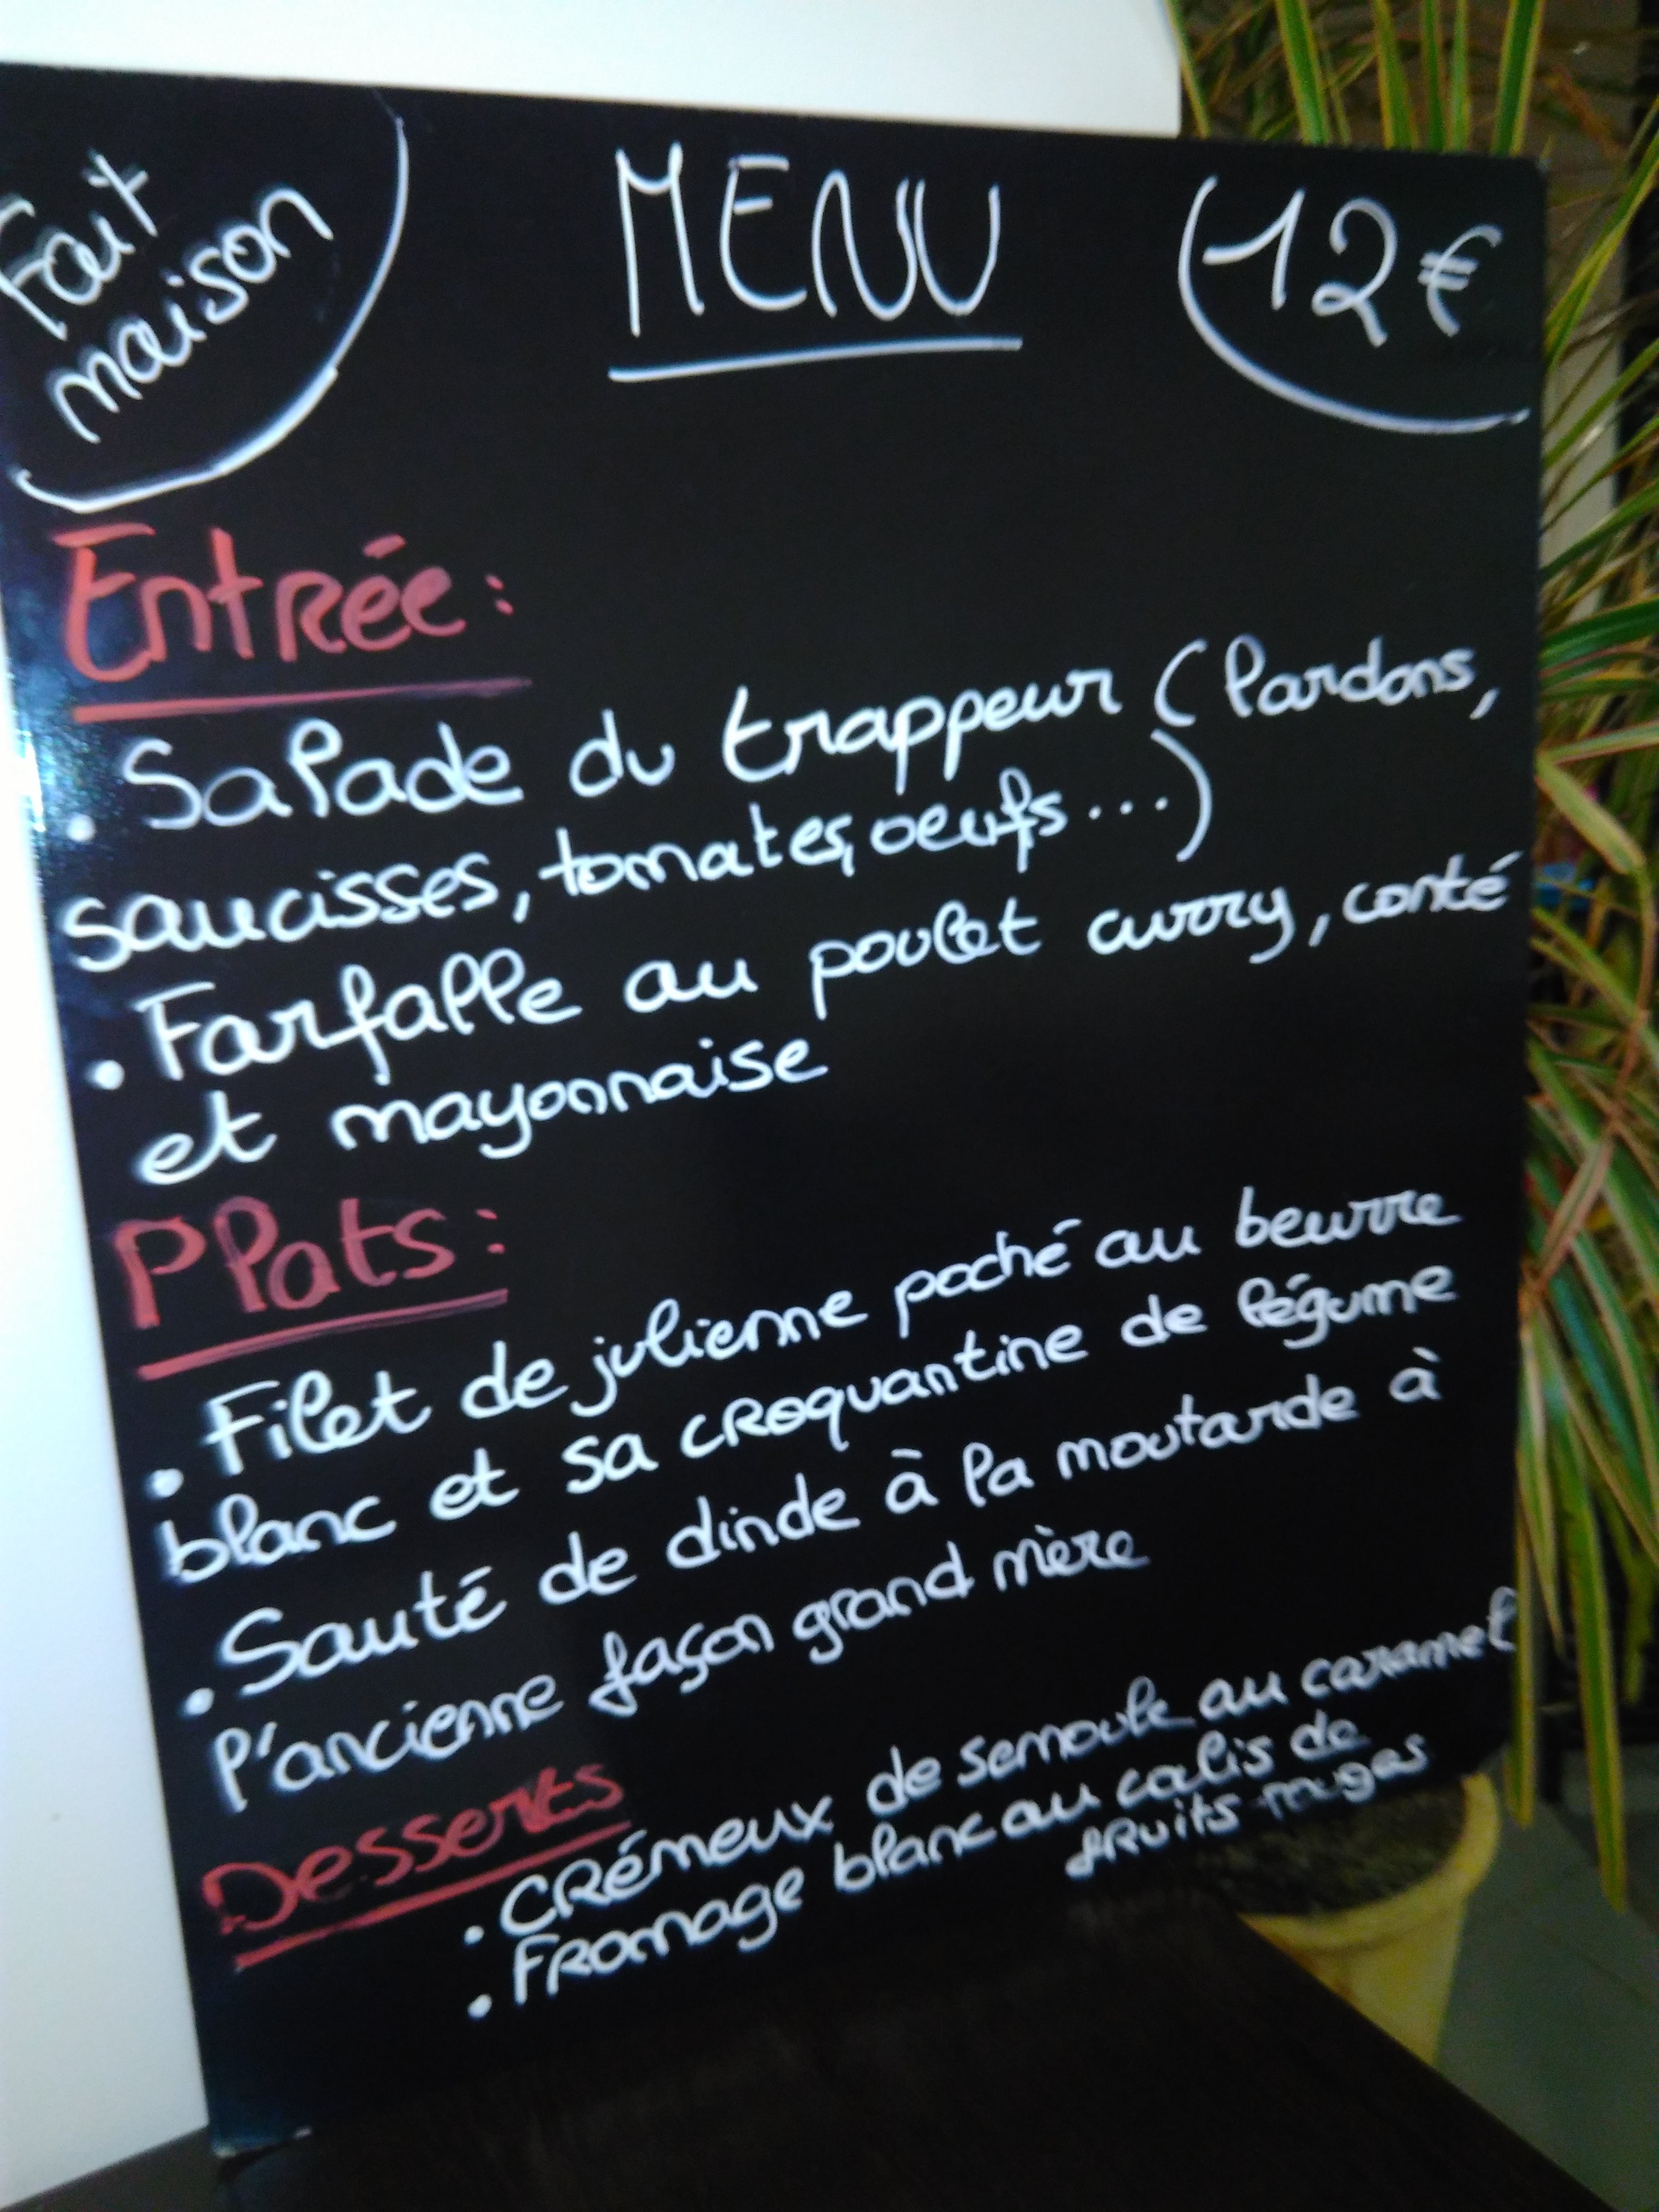 Fait
maison
MENU
12€
Entrée:
. Salade du trappeur (lardons,
saucisses, tomates, oeufs...)
. Farfalle au poulet curry, conté
et mayonnaise
Plats:
. Filet de julienne poché au beurre
blanc et sa croquantine de légume
. Sauté de dinde à la moutarde à
l'ancienne façon grand mère
Desserts
. Crémeux de semoule au caramel
. Fromage blanc au calis de
fruits rouges